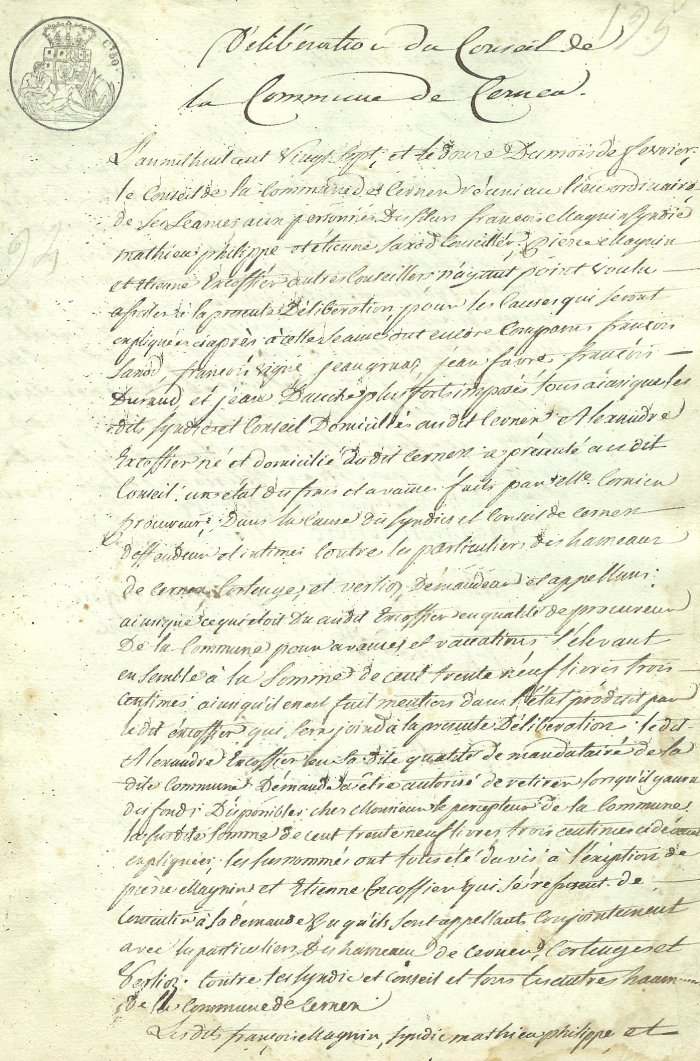 195
C.80.
Délibération du Conseil de
la Commune de Cernex.
L'an mil huit cent Vingt Sept, et le douze Du mois de fevrier,
le Conseil de la Commune de Cernex réuni au lieu ordinaire
de Ses Seances aux personnes Des Srs françois Magnin Syndic
mathieu philippe et étienne Saxod Conseillers, pierre Magnin
et Etienne Excoffier autres Conseillers n'ayant point voulu
assister à la presente Déliberation, pour les Causes qui Seront
expliquées ciaprès à cette Seance ont encore Comparus françois
Saxod, françois vigne, jean gruaz, jean favre, françois
Durand et jean Dauche plus forts imposés tous ainsi que les
dits Syndic et Conseil Domiciliés audit Cernex. Alexandre
Excoffier né et domicilié Dudit Cernex a présenté au dit
Conseil un état des frais et avances faits par Me
procureur, Dans la Cause des Syndics et Conseil de Cernex
Deffendeurs et intimés Contre les particuliers des hameaux
de Cernex, Cortenge, et verlioz, Demandeurs et appellans:
ainsi que ce qui étoit Du audit Excoffier en qualité de procureur
De la Commune pour avances, et vacations S'élevant
ensemble à la Somme de cent trente neuf livres trois
Centimes, ainsi qu'il en est fait mention dans l'état produit par
le dit éxcoffier qui Sera joind à la presente Déliberation. le dit
Alexandre Excoffier en Sa dite qualité de mandataire de la
dite Commune Demande à être autorisé de retirer lorsqu'il y aura
des fonds Disponibles chez Monsieur le percepteur de la Commune
la Susdite Somme de cent trente neuf livres trois centimes cidevant
expliquées. les Susnommés ont tous été d'avis à l'éxeption de
pierre Magnin et Etienne Excoffier qui Se refusent de
Consentir à Sa demande Vu qu'ils Sont appellants Conjointement
avec les particuliers Des hameaux de Cernex, Cortenges et
Verlioz. Contre les Syndic et Conseil et tous les autres hameaux
De la Commune de Cernex.
Les dits françois Magnin, Syndic mathieu philippe et